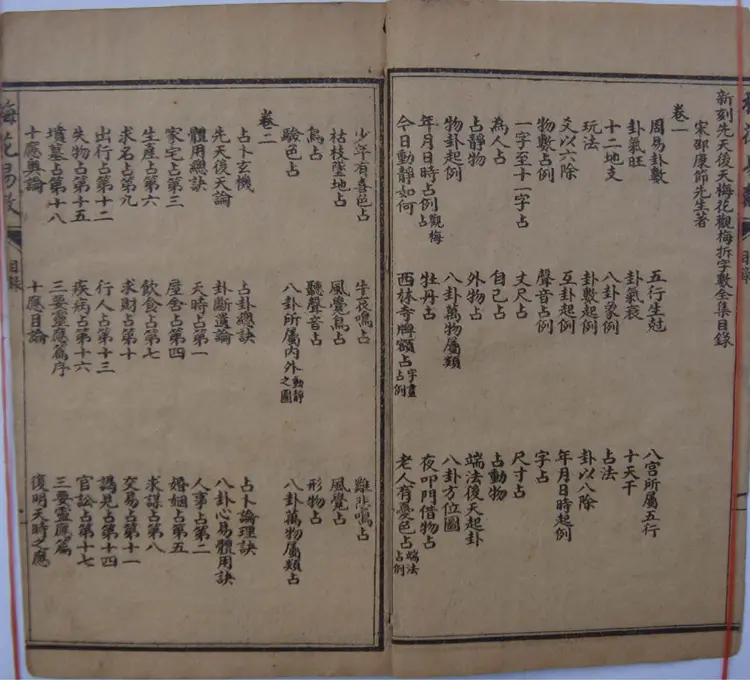 新刻先天後天梅花觀梅拆字數全集目錄
宋邵康節先生著
卷一
周易卦數 五行生尅 八宮所屬五行
卦氣旺 卦氣衰 十天干
十二地支 八卦象例 占法
玩法 卦數起例 卦以八除
爻以六除 互卦起例 年月日時起例
物數占例 聲音占例 字占
一字至十一字占 丈尺占 尺寸占
為人占 自己占 占動物
占靜物 外物占 端法後天起卦
物卦起例 八卦萬物屬類 八卦方位圖
年月日時占觀梅占例 牡丹占 夜叩門借物占
今日動靜如何 西林寺牌額占字畫占例 老人有憂色占端法占例
少年有喜色占 牛哀鳴占 雞悲鳴占
枯枝墜地占 風覺鳥占 風覺占
鳥占 聽聲音占 形物占
驗色占 八卦所屬內外動靜之圖 八卦萬物屬類占
卷二
占卜玄機 占卦總訣 占卜論理訣
先天後天論 卦斷遺論 八卦心易體用訣
體用總訣 天時占第一 人事占第二
家宅占第三 屋舍占第四 婚姻占第五
生產占第六 飲食占第七 求謀占第八
求名占第九 求財占第十 交易占第十一
出行占第十二 行人占第十三 謁見占第十四
失物占第十五 疾病占第十六 官訟占第十七
墳墓占第十八 三要靈應篇序 三要靈應篇
十應奧論 十應目論 復明天時之應
梅花易數 目錄